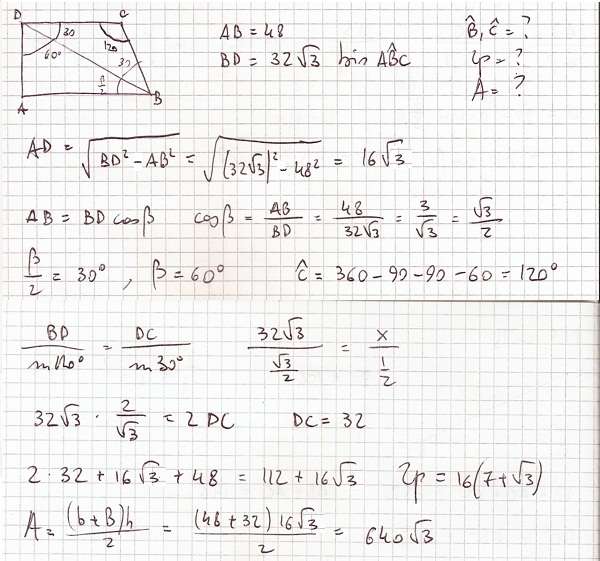 D C
30 120
60° 30
β/2
A B
AB = 48
BD = 32√3 bis AB̂C
B̂, Ĉ = ?
2p = ?
A = ?
AD = √(BD² - AB²) = √((32√3)² - 48²) = 16√3
AB = BD cosβ cosβ = AB/BD = 48/32√3 = 3/√3 = √3/2
β/2 = 30° , β = 60° Ĉ = 360 - 90 - 90 - 60 = 120°
BD/sin120° = DC/sin30° 32√3/(√3/2) = x/(1/2)
32√3 · 2/√3 = 2 DC DC = 32
2 · 32 + 16√3 + 48 = 112 + 16√3 2p = 16(7+√3)
A = (b+B)h/2 = (48+32) 16√3/2 = 640√3